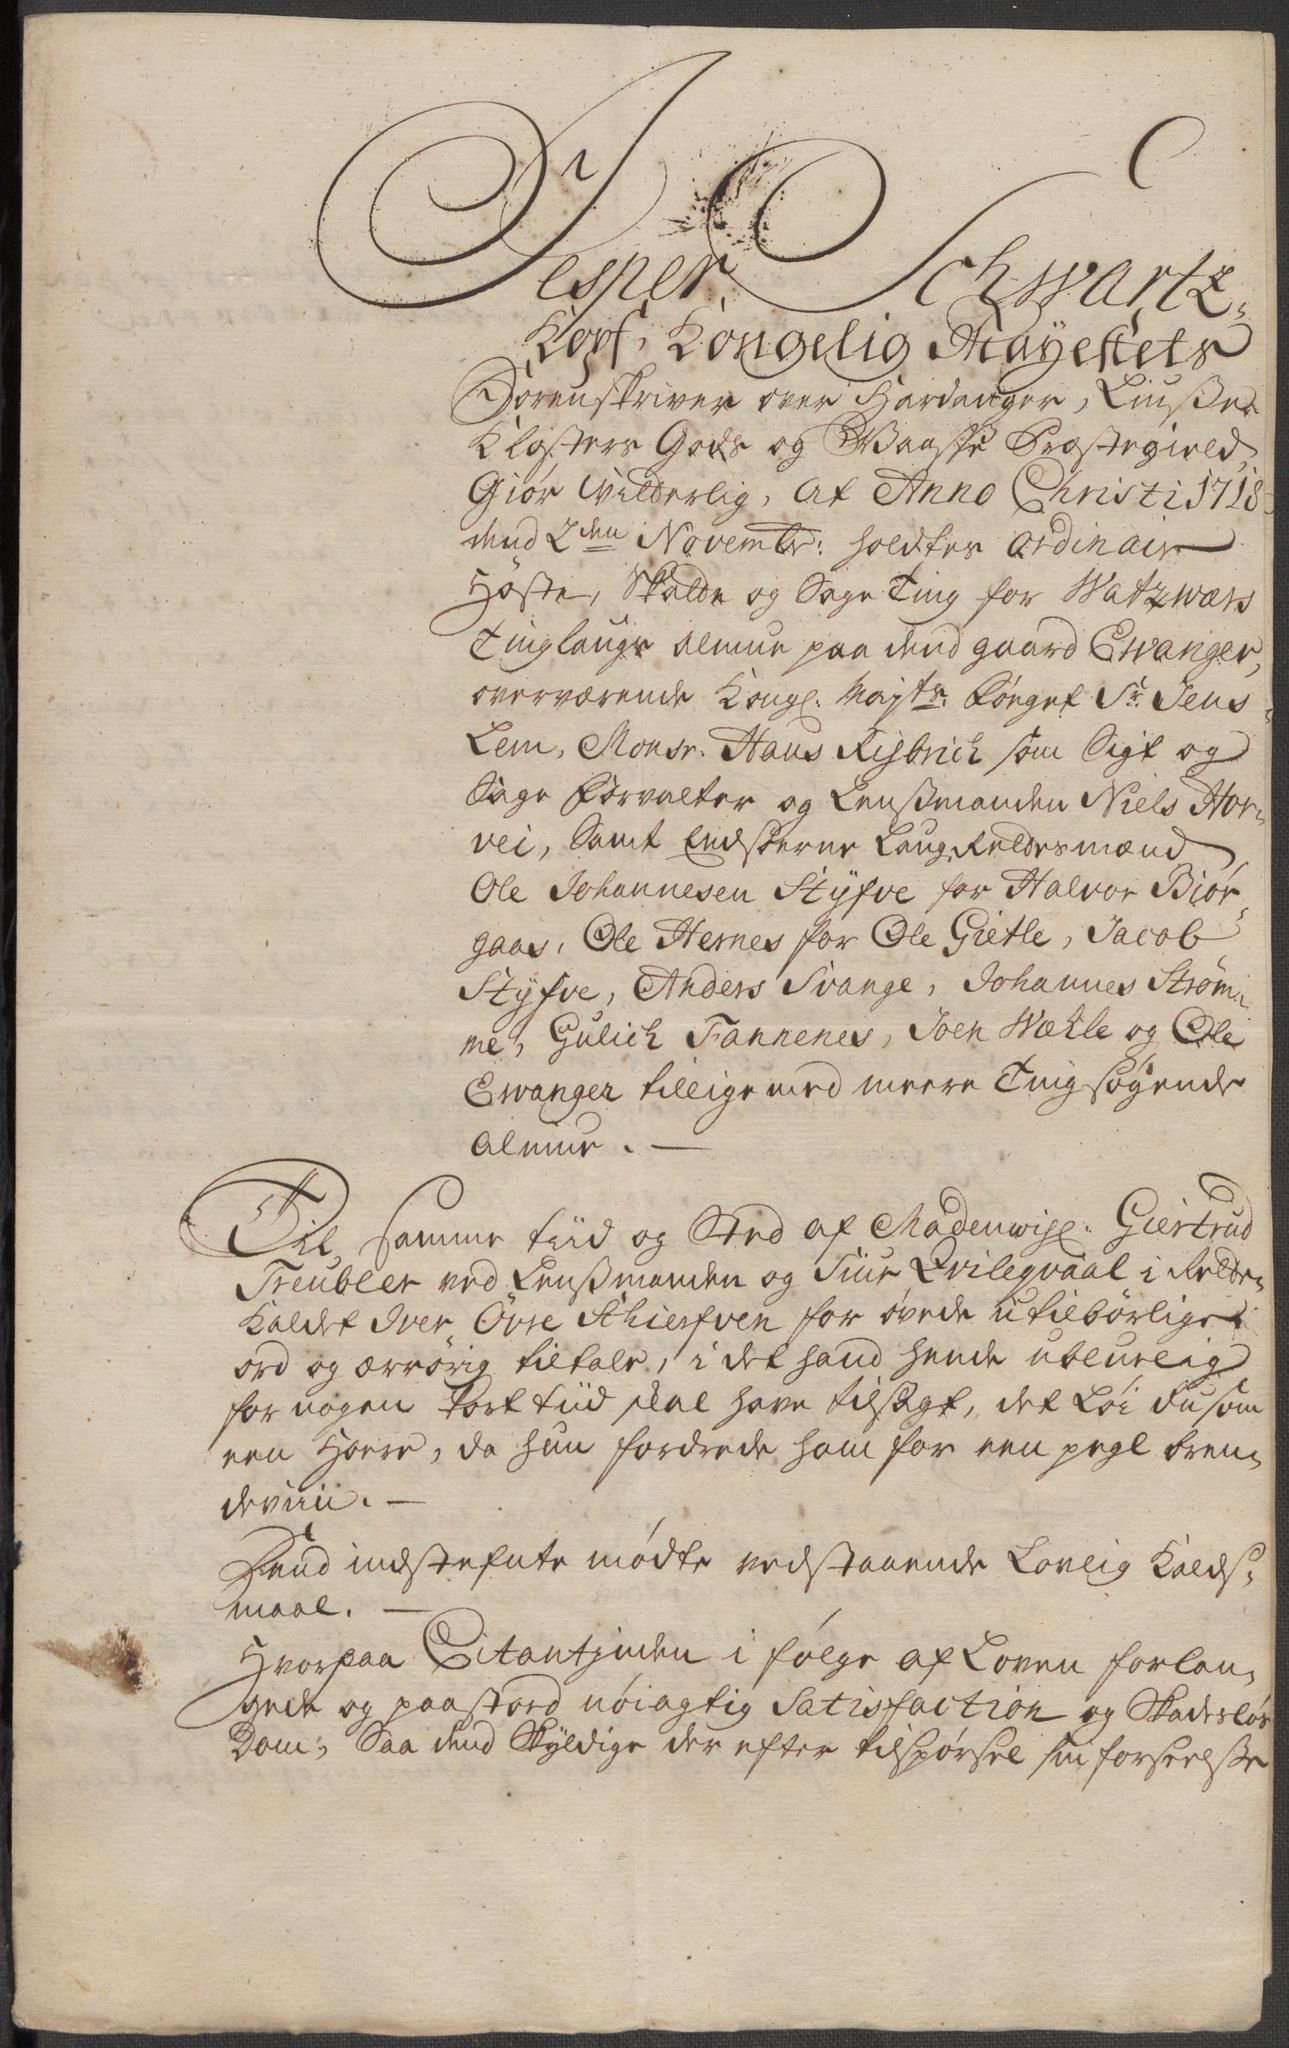 Jesper Schwartz-
Kopf, Kongelig Mayestets
Sorenskriver over Hardanger, Liuße
Klosters Gods og Waaße Præstegield
Giör Vitterlig, at Anno Christi 1718
dend 2den Novembr: holdtes ordinair
Höste, Skatte og Sage Ting for Watzwærs
Tinglaugs almue paa dend gaard Evanger,
overværende Kongl. Mayts: Foeget Sr. Jens
Lem, Monsr. Hans Rÿbrich som Sigt og
Sage Forvalter og Lenßmanden Niels Hor-
vei, Samt Endskerne Laugrettesmænd
Ole Johannesen Stÿfve for Halvor Biör
gaas, Ole Hernes for Ole Gietle, Jacob
Stÿfve, Anders Svange, Johannes Ström-
me, Gulich Fannenes, Joen Wæhle og Ole
Evanger tillige med meere Ting søgende
almue. —
Til samme tiid og Sted af Madmoisl. Giertrud
Treubler ved Lenßmanden og Siur Qvileqvaal i Rette-
Kaldet Iver Övre Schierfven for øvede utilbörliget
ord og ærrörig tiltale, i det hand hende ubluelig
for nogen kort tiid skal have tilsagt, det Löi du som
een Hoere, da hun fordrede ham for een pegl bren-
deviin. —
Dend indstefnte mødte vedstaaende Lovlig Kalds-
maal. —
Hvorpaa Citantinden i fölge af Loven forlan-
gede og paastod nöiagtig Satisfaction og Skadeslös
Dom, Saa dend Skÿldige der efter tilspörsel sin forseelße